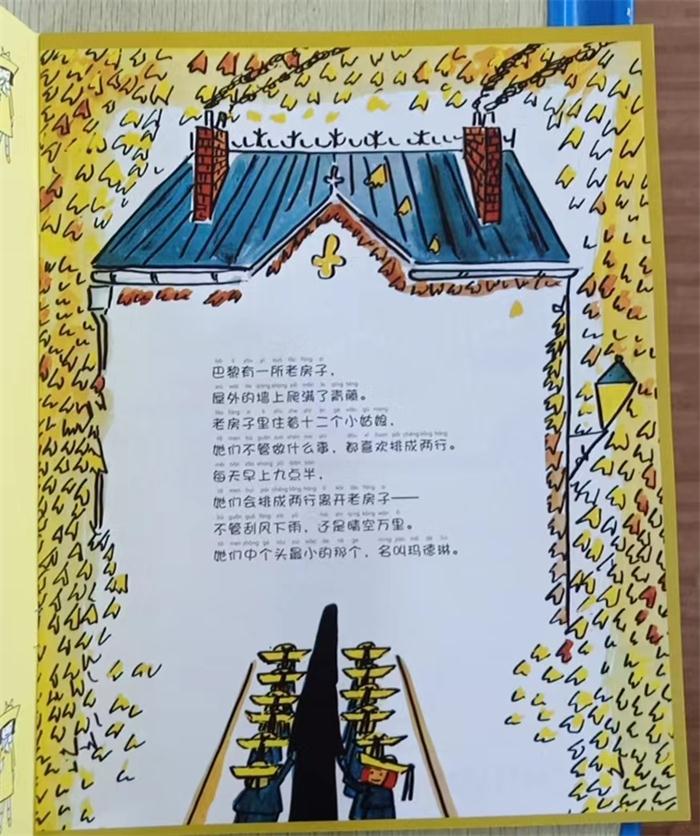 巴黎有一所老房子，
屋外的墙上爬满了青藤。
老房子里住着十二个小姑娘，
她们不管做什么事，都喜欢排成两行。
每天早上九点半，
她们会排成两行离开老房子——
不管刮风下雨，还是晴空万里。
她们中个头最小的那个，名叫玛德琳。